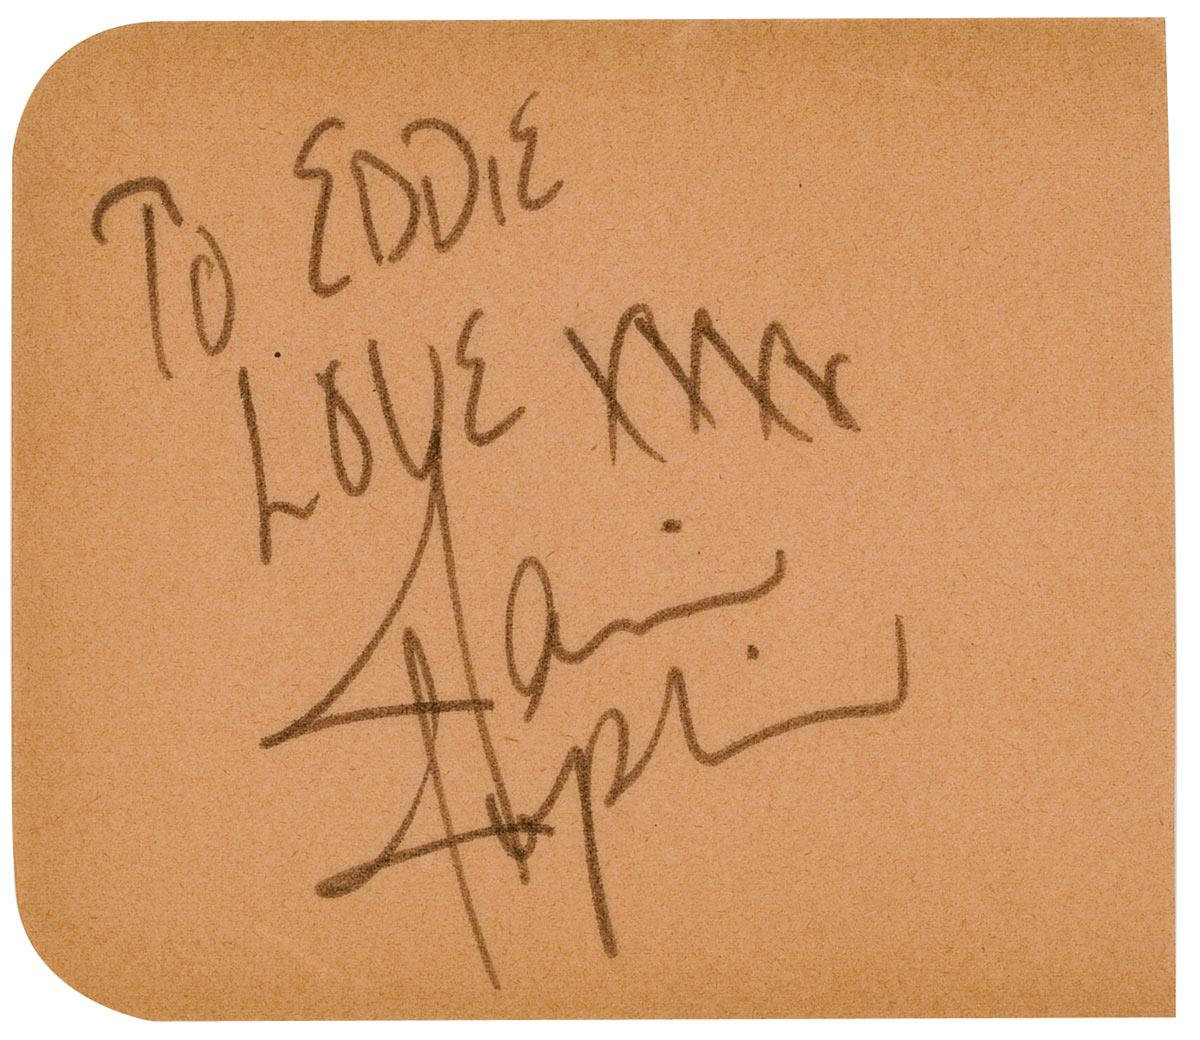 TO EDDIE
LOVE XXXX
Janis
Joplin